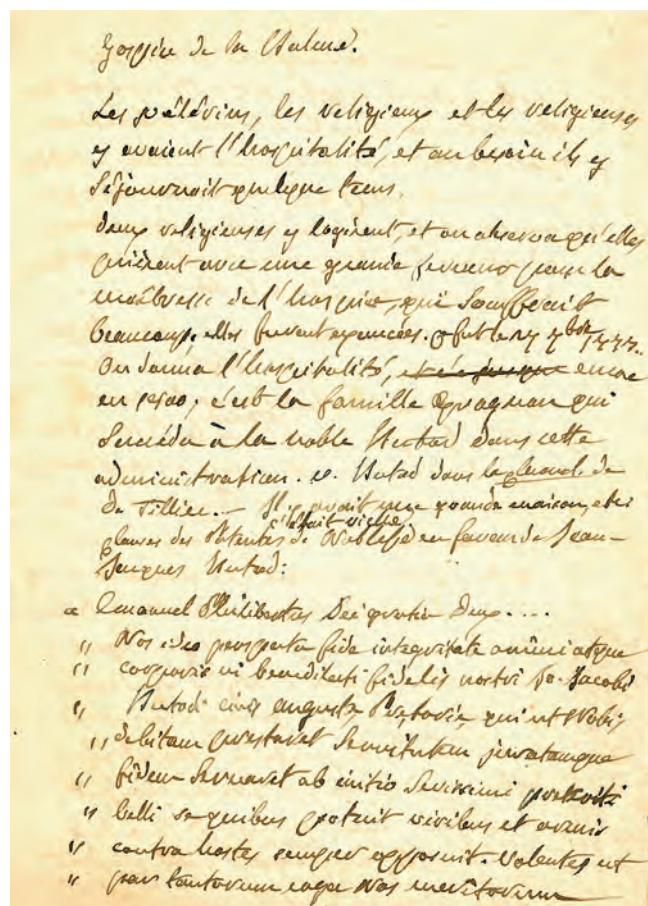 Hospice de la
Les pélérins, les religieux et les religieuses
y avaient l'hospitalité, et au besoin ils y
séjournait quelque tems.
Deux religieuses y logèrent, et on observa qu'elles
prièrent avec une grande ferveur pour la
maîtresse de l'hospice, qui souffrait
beaucoup, elles furent exaucées. 7bre
On donna l'hospitalité, encore
en c'est la famille qui
succéda à la noble dans cette
administration. v. dans le de
De Tillier. — avait une grande maison, et
c'était riche
clauses des Patentes de Noblesse en faveur de Jean-
Jacques
« Emanuel Philibertus Dei gratia Dux ....
" Nos ideo perspecta fide integritate animi atque
" corporis benedilecti fidelis nostri Jo. Jacobi
" civis auguste Pretorie, qui ut Nobis
" debitam prestaret servitutem juratamque
" fidem servaret ab initio sevissimi
" belli se quibus potuit viribus et
" contra hostes semper opposuit. Volentes ut
" tantorum erga Nos meritorum